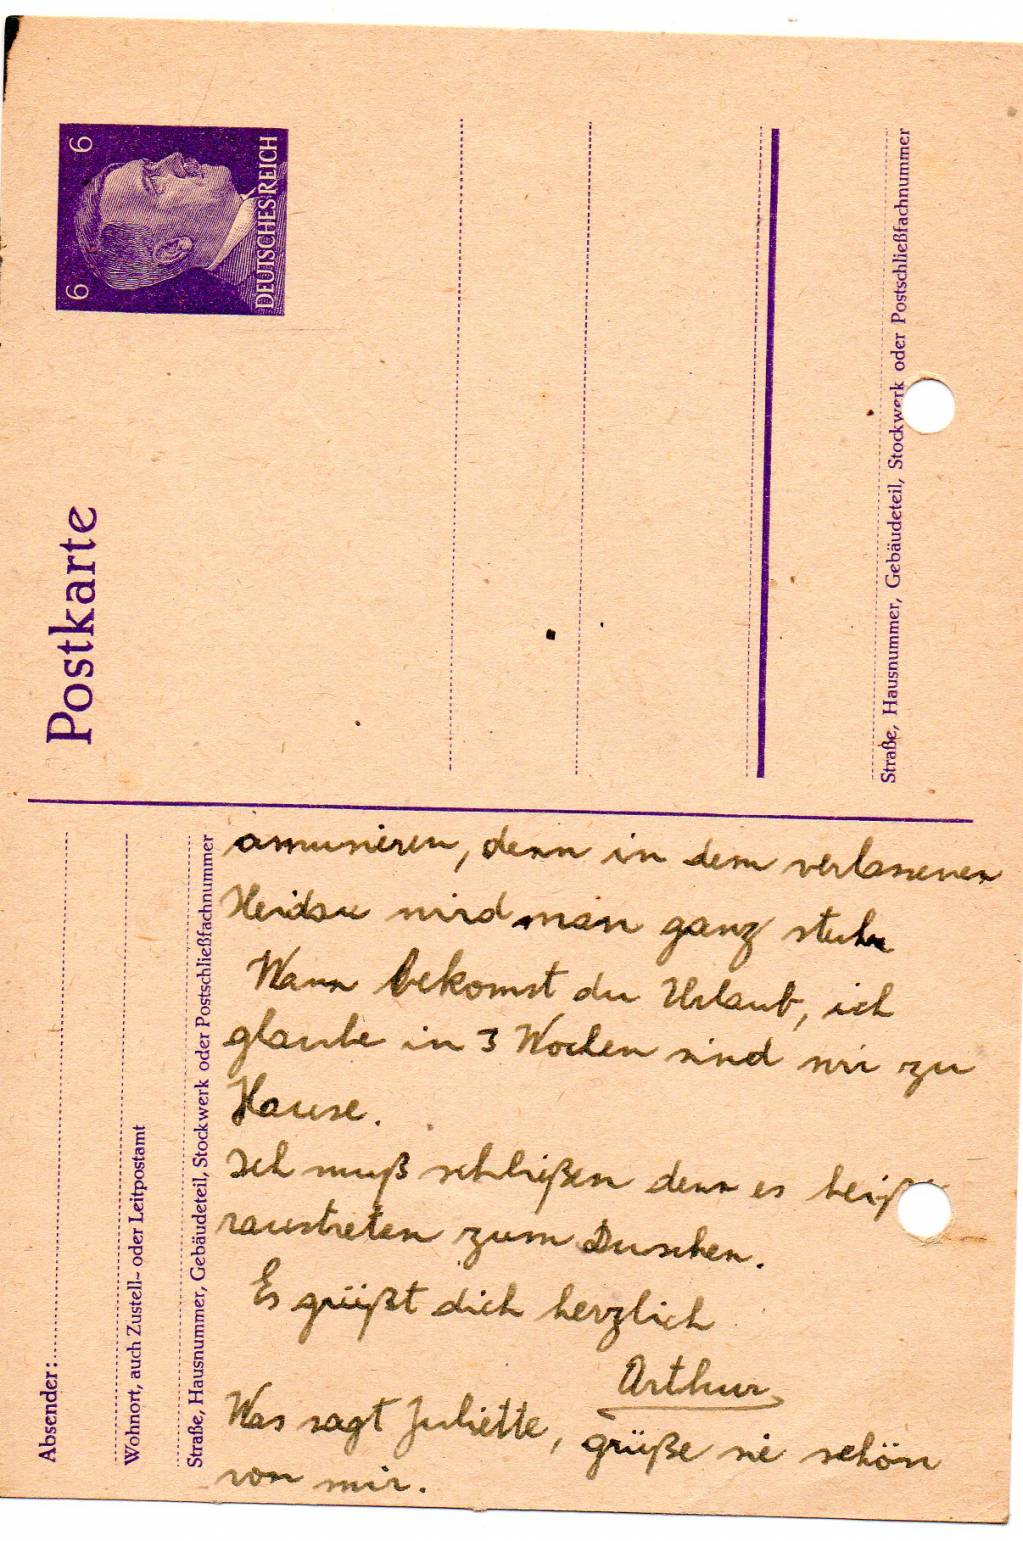 6 6
DEUTSCHES REICH
Postkarte
Straße, Hausnummer, Gebäudeteil, Stockwerk oder Postschließfachnummer
Absender:
Wohnort, auch Zustell- oder Leitpostamt
Straße, Hausnummer, Gebäudeteil, Stockwerk oder Postschließfachnummer
amusieren, denn in dem verlassenen
wird man ganz
Wann bekomst du Urlaub, ich
glaube in 3 Wochen sind wir zu
Hause.
Ich muß schließen denn es heißt
raustreten zum Duschen.
Es grüßt dich herzlich
Arthur
Was sagt Juliette, grüße sie schön
von mir.